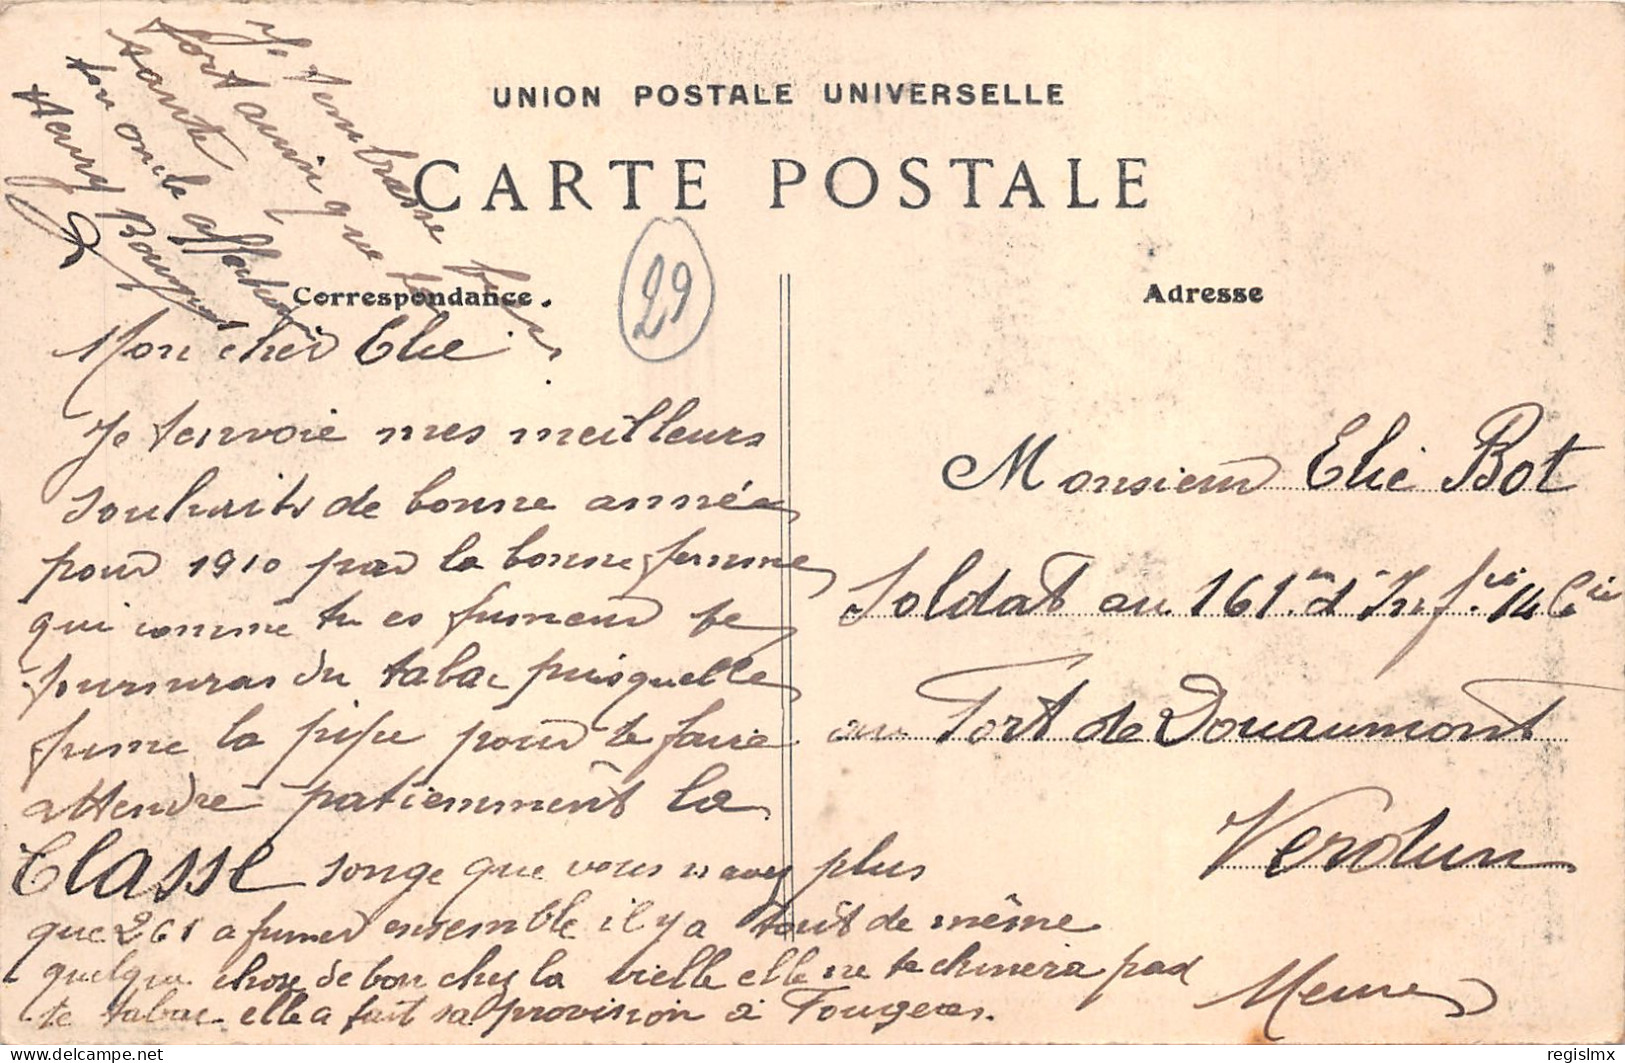 UNION POSTALE UNIVERSELLE
CARTE POSTALE
Correspondance.
Adresse
29
Mon cher Elie
Je t'envoie mes meilleurs
souhaits de bonne année
pour 1910 par la bonne femme
qui comme tu es fumeur te
fournira du tabac puisquelle
fume la pipe pour te faire
attendre patiemment la
CLASSE songe que vous n'avez plus
que 261 a fumer ensemble il y a tout de même
quelque chose de bon chez la vieille elle ne te chinera pas
te tabac elle a fait sa provision à Fougères.
Je t'embrasse bien
fort ainsi que ta
tante
ton oncle affectionné
Henry
Monsieur Elie Bot
Soldat au 161.me d'Inf.rie 14 Cie
au Fort de Douaumont
Verdun
Meuse
delcampe.net
regislmx